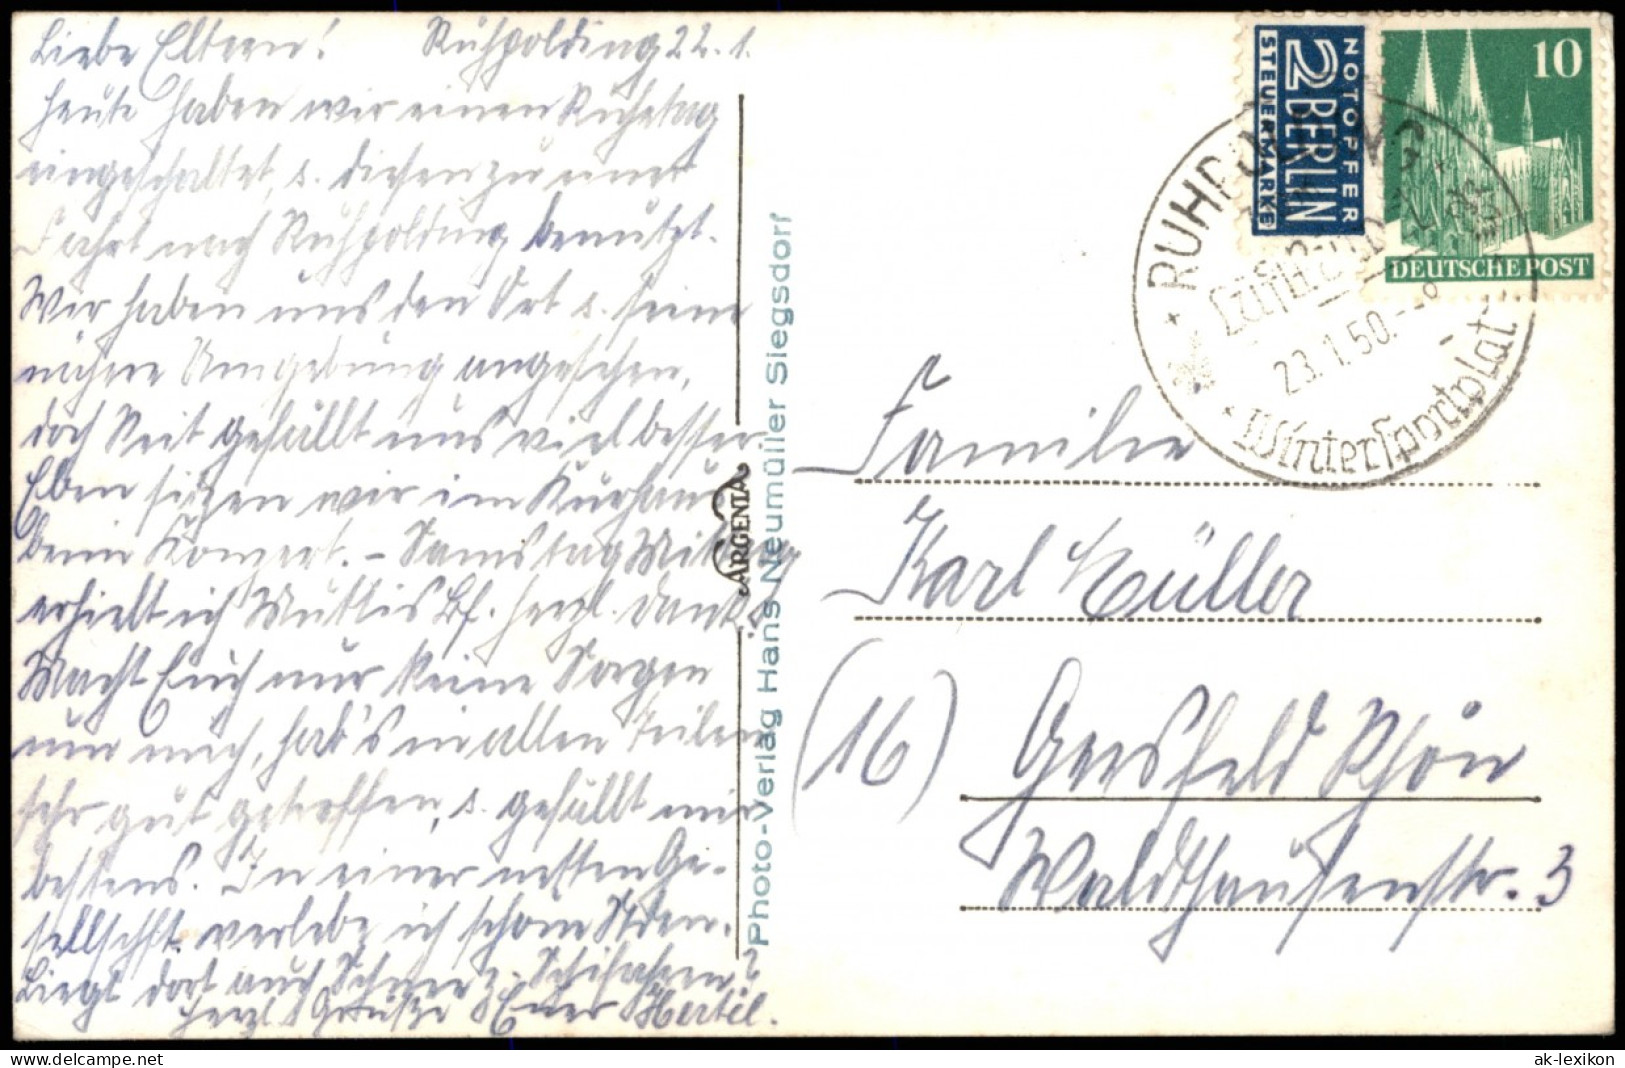 Liebe Eltern! Ruhpolding 22.1.
Heute haben wir einen Ruhetag
eingeschaltet, u. diesen zu einer
Fahrt nach Ruhpolding benutzt.
Wir haben uns den Ort u. seine
nähere Umgebung angesehen,
doch Reit gefällt uns viel besser.
Eben sitzen wir im Kurhaus
beim Konzert. – Samstag Mittag
erhielt ich Muttis Bf. herzl. Dank!
Macht Euch nur keine Sorgen
um mich, hab's in allen Teilen
sehr gut getroffen, u. gefällt mir
bestens. In einer netten Ge-
sellschft. verlebe ich schöne Stden.
Liegt dort auch Schnee z. Schifahren?
Herzl. Grüße Euer Hertel.
ARGENTA
Photo-Verlag Hans Neumüller Siegsdorf
NOTOPFER
2 BERLIN
STEUERMARKE
10
DEUTSCHE POST
RUHPOLDING
Luftkur- und
23.1.50.
Wintersportplatz
Familie
Karl Müller
(16) Gersfeld Rhön
Waldthausenstr. 3
ak-lexikon
Image possibly subject to copyright / Image éventuellement sujette à copyright